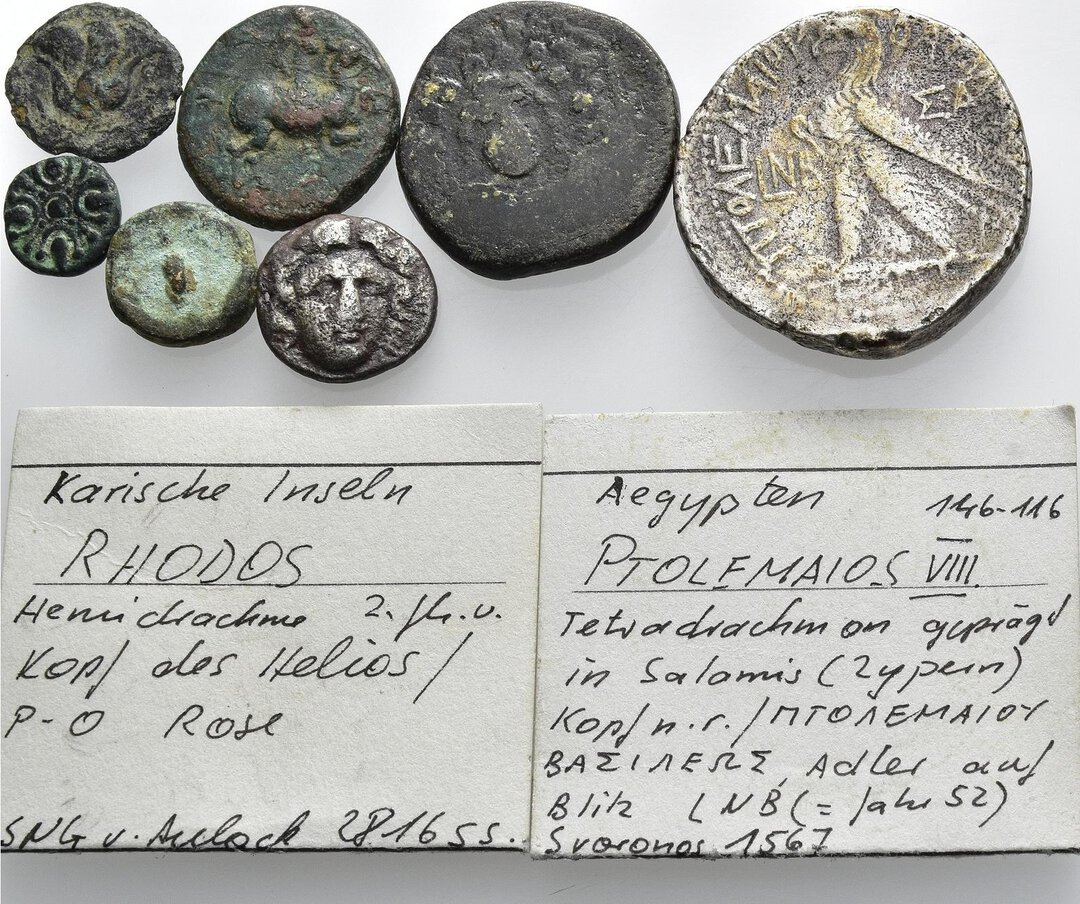 ΠΤΟΛΕΜΑΙΟΥ
ΣΑ
Karische Inseln
RHODOS
Hemidrachme 2. Jh. v.
Kopf des Helios /
P-O Rose
SNG v. Aulock 2816 ss.
Aegypten 146-116
PTOLEMAIOS VIII.
Tetradrachmon geprägt
in Salamis (Zypern)
Kopf n. r. / ΠΤΟΛΕΜΑΙΟΥ
ΒΑΣΙΛΕΩΣ, Adler auf
Blitz LNB (= Jahr 52)
Svoronos 1567